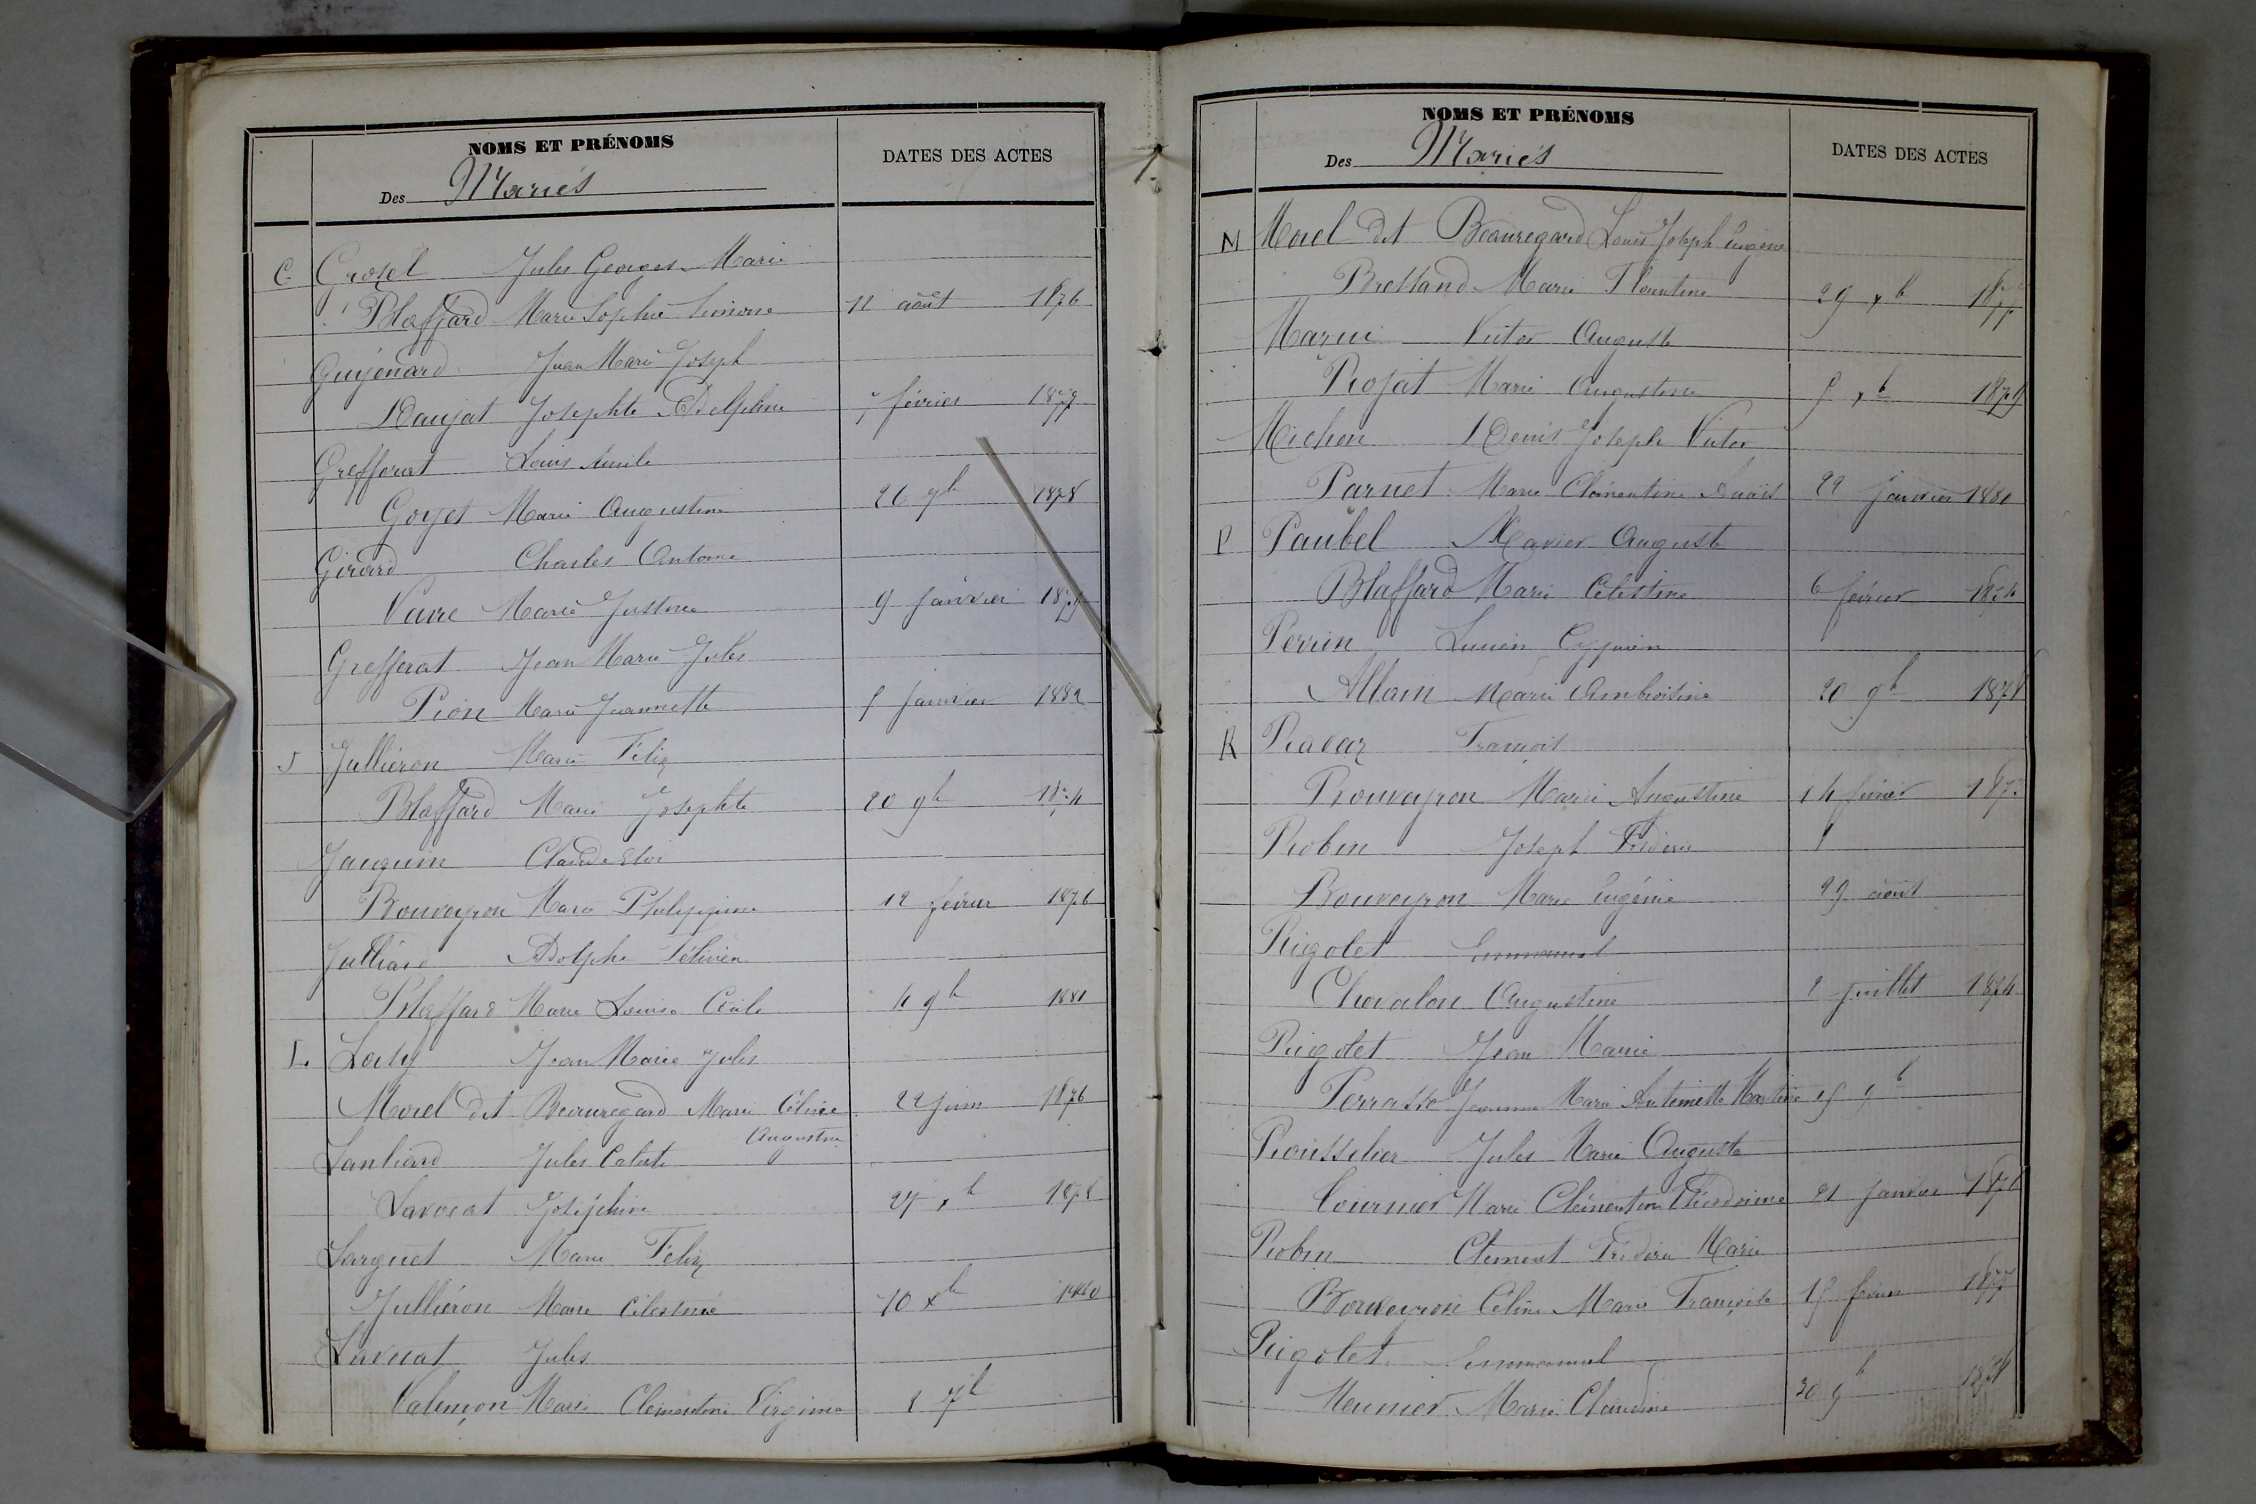 NOMS ET PRÉNOMS
Des Mariés
DATES DES ACTES
G Grosel Jules Georges Marie
Blaffard Marie Sophie Simone 12 août 1876
Guyénard Jean Marie Joseph
Daujat Josephte Adelphine 7 février 1877
Grefferat Louis Emile
Goyet Marie Augustine 26 9b 1878
Girard Charles Antoine
Vuire Marie Justine 9 janvier 1879
Grefferat Jean Marie Jules
Pion Marie Jeannette janvier 1882
J Julliéron Marie Félix
Blaffard Marie Josephte 20 9b 1874
Jauquin Claude Eloi
Bouveyron Marie Philippine 12 février 1876
Julliard Adolphe
Blaffard Marie Louise Cécile 4 9b 1881
L Laily Jean Marie Jules
Morel dit Beauregard Marie Céline 22 juin 1876
Augustine
Lanliard Jules
Lavocat Joséphine 27 xb 1878
Larguet Marie Félix
Julliéron Marie Célestine 10 xb 1880
Lavocat Jules
Valençon Marie Clémentine Virginie 8 7b
NOMS ET PRÉNOMS
Des Mariés
DATES DES ACTES
M Morel dit Beauregard Louis Joseph Eugène
Bressand Marie Florentine 29 xb 1877
Marin Victor Auguste
Projat Marie Augustine xb 1879
Michon Denis Joseph Victor
Parnet Marie Clémentine Anaïs 22 janvier 1881
P Paubel Xavier Auguste
Blaffard Marie Célestine 6 février 1874
Perrin Lucien Cyprien
Allain Marie Ambroisine 20 9b 1878
R Ravaz François
Bouveyron Marie Augustine 14 février 1873
Robin Joseph Frédéric
Bouveyron Marie Eugénie 29 août
Rigolet Emmanuel
Chavalon Augustine juillet 1874
Rigolet Jean Marie
Perrasse Jeanne Marie Antoinette Martine 9b
Rousselier Jules Marie Auguste
Cournier Marie Clémentine 21 janvier
Robin Clément Frédéric Marie
Bouveyron Céline Marie Françoise février 1877
Rigolet Emmanuel
Meunier Marie Claudine 20 9b 1878